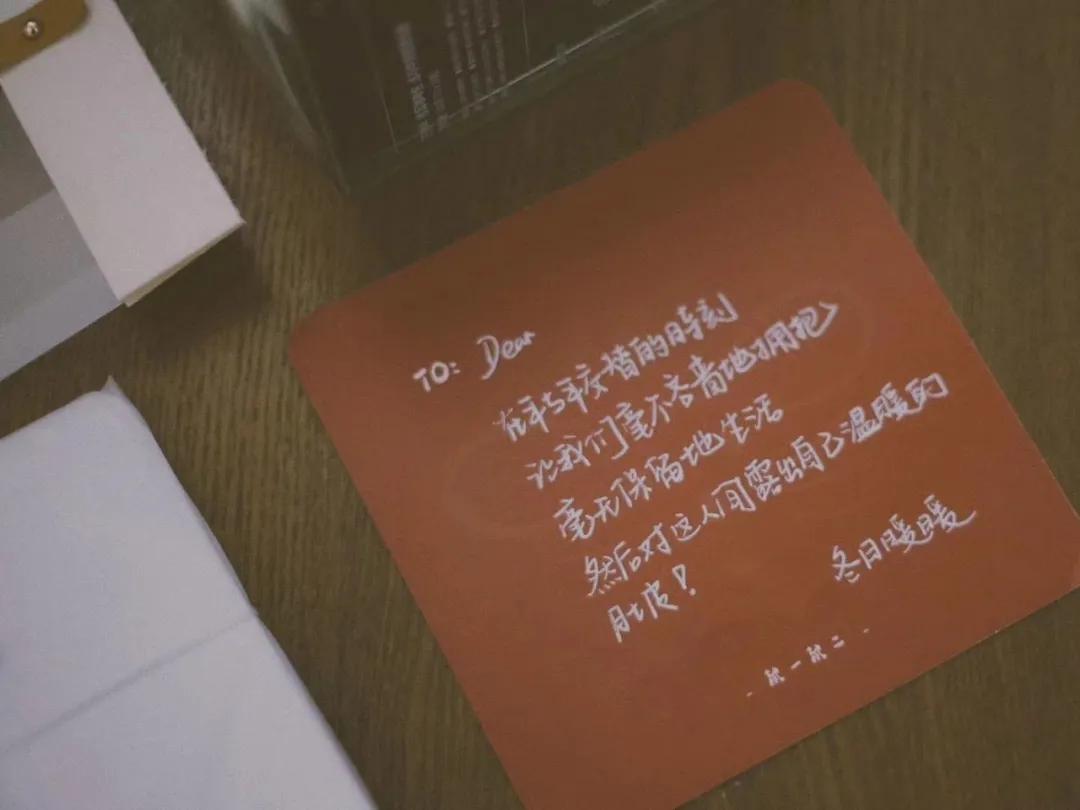 TO: Dear
在年与年交替的时刻
让我们毫不吝啬地拥抱
毫无保留地生活
然后对这人间露出自己温暖的
肚皮!
冬日暖暖